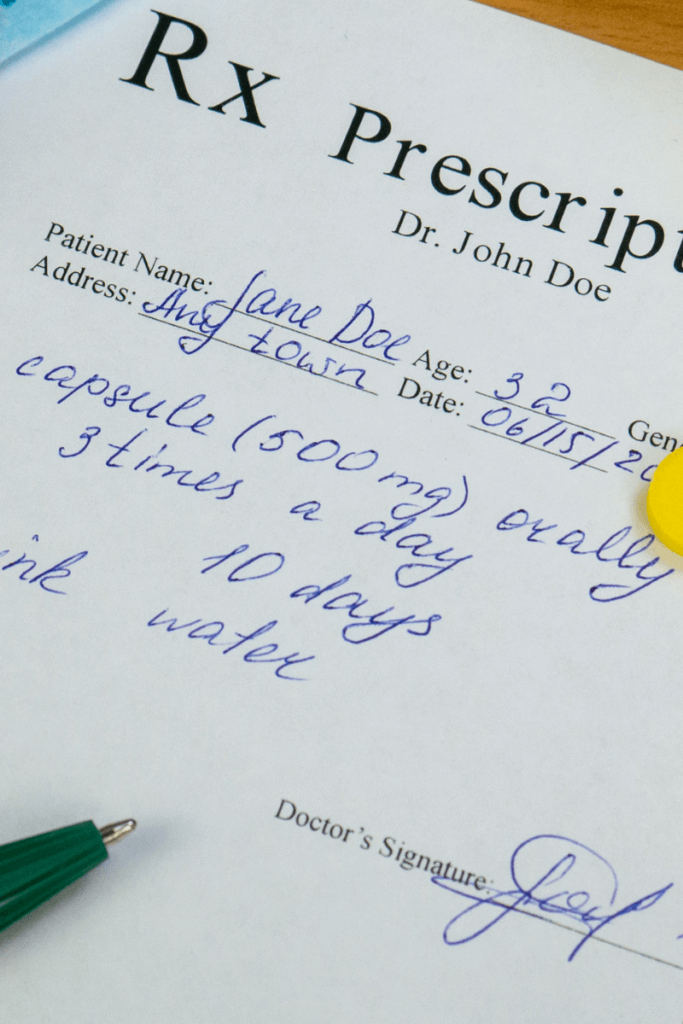 Rx Prescript
Dr. John Doe
Patient Name: Jane Doe Age: 32 Gen
Address: Any town Date: 06/15/20
capsule (500mg) orally
3 times a day
10 days
ink water
Doctor's Signature: